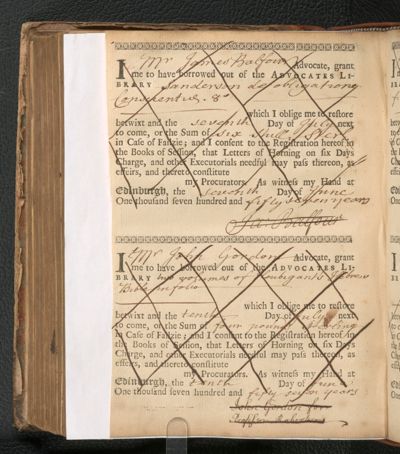 I Mr James Balfour Advocate, grant
me to have borrowed out of the ADVOCATES LI-
BRARY Sanderson de obligatione
Conscientiæ. 8º
which I oblige me to restore
betwixt and the seventh Day of July next
to come, on the Sum of Six Shill: Sterl:
in Case of Failzie; and I consent to the Registration hereof in
the Books of Session, that Letters of Horning on six Days
Charge, and other Executorials needful may pass thereon, as
effeirs, and thereto constitute
my Procurators. As witness my Hand at
Edinburgh, the seventh Day of June
One thousand seven hundred and fifty seven years
Ja: Balfour
I Mr John Gordon Advocate, grant
me to have borrowed out of the ADVOCATES LI-
BRARY two volumes of Houbigants Hebrew
Bible in folio
which I oblige me to restore
betwixt and the tenth Day of July next
to come, on the Sum of four pounds sterling
in Case of Failzie; and I consent to the Registration hereof in
the Books of Session, that Letters of Horning on six Days
Charge, and other Executorials needful may pass thereon, as
effeirs, and thereto constitute
my Procurators. As witness my Hand at
Edinburgh, the tenth Day of June
One thousand seven hundred and fifty seven years
John Gordon for
Professor